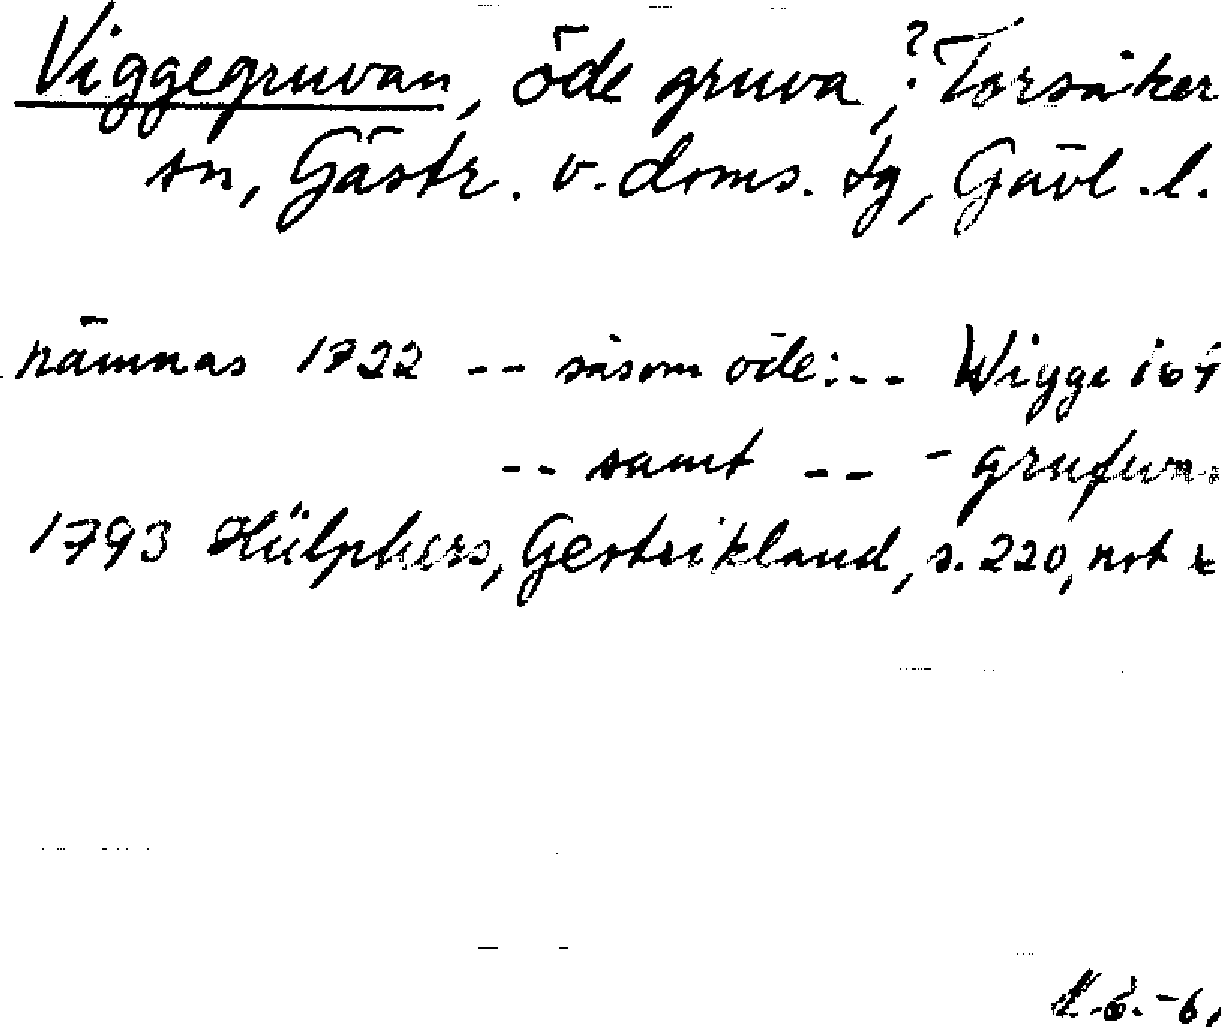 Viggegruvan, öde gruva, ? Torsåker
sn, Gästr. v. doms. tg, Gävl. l.
nämnas 1722 -- såsom öde: -- Wigge
-- samt -- - grufwa
1793 Hülphers, Gestrikland, s. 220, not